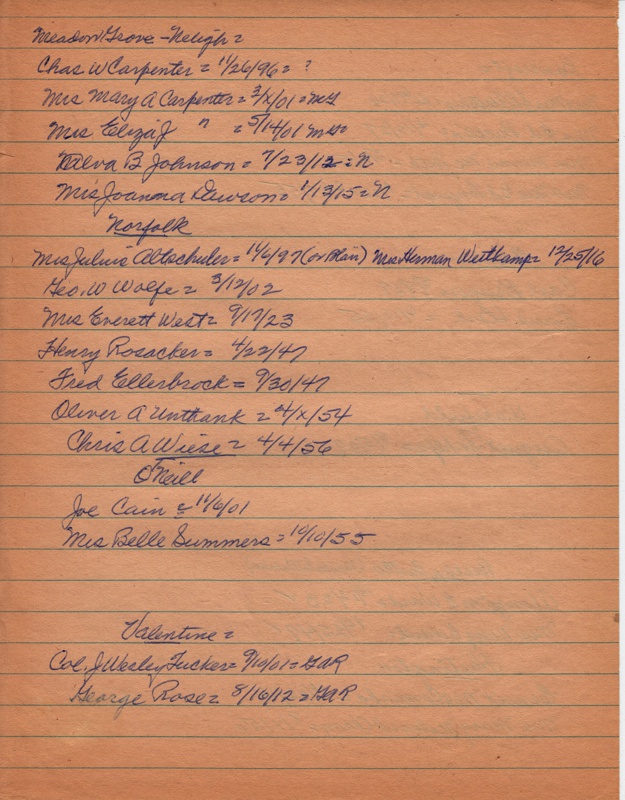 Meadow Grove - Neligh =
Chas W Carpenter = 11/26/96 = ?
Mrs Mary A Carpenter = 3/x/01 = MG
Mrs Eliza J " = 5/14/01 MG
B Johnson = 7/23/12 = N
Mrs Joanna Dawson = 1/13/15 = N
Norfolk
Mrs Julius Altschuler = 11/6/97 (or Blair) Mrs Herman Weitkamp = 12/25/16
Geo. W Wolfe = 3/12/02
Mrs Everett West = 9/17/23
Henry Rosacker = 4/22/47
Fred Ellerbrock = 9/30/47
Oliver A Unthank = 4/x/54
Chris A Wiese = 4/4/56
O'Neill
Joe Cain = 11/6/01
Mrs Belle Summers = 10/10/55
Valentine =
Col. J Wesley Tucker = 9/10/01 = GAR
George Rose = 8/16/12 = GAR